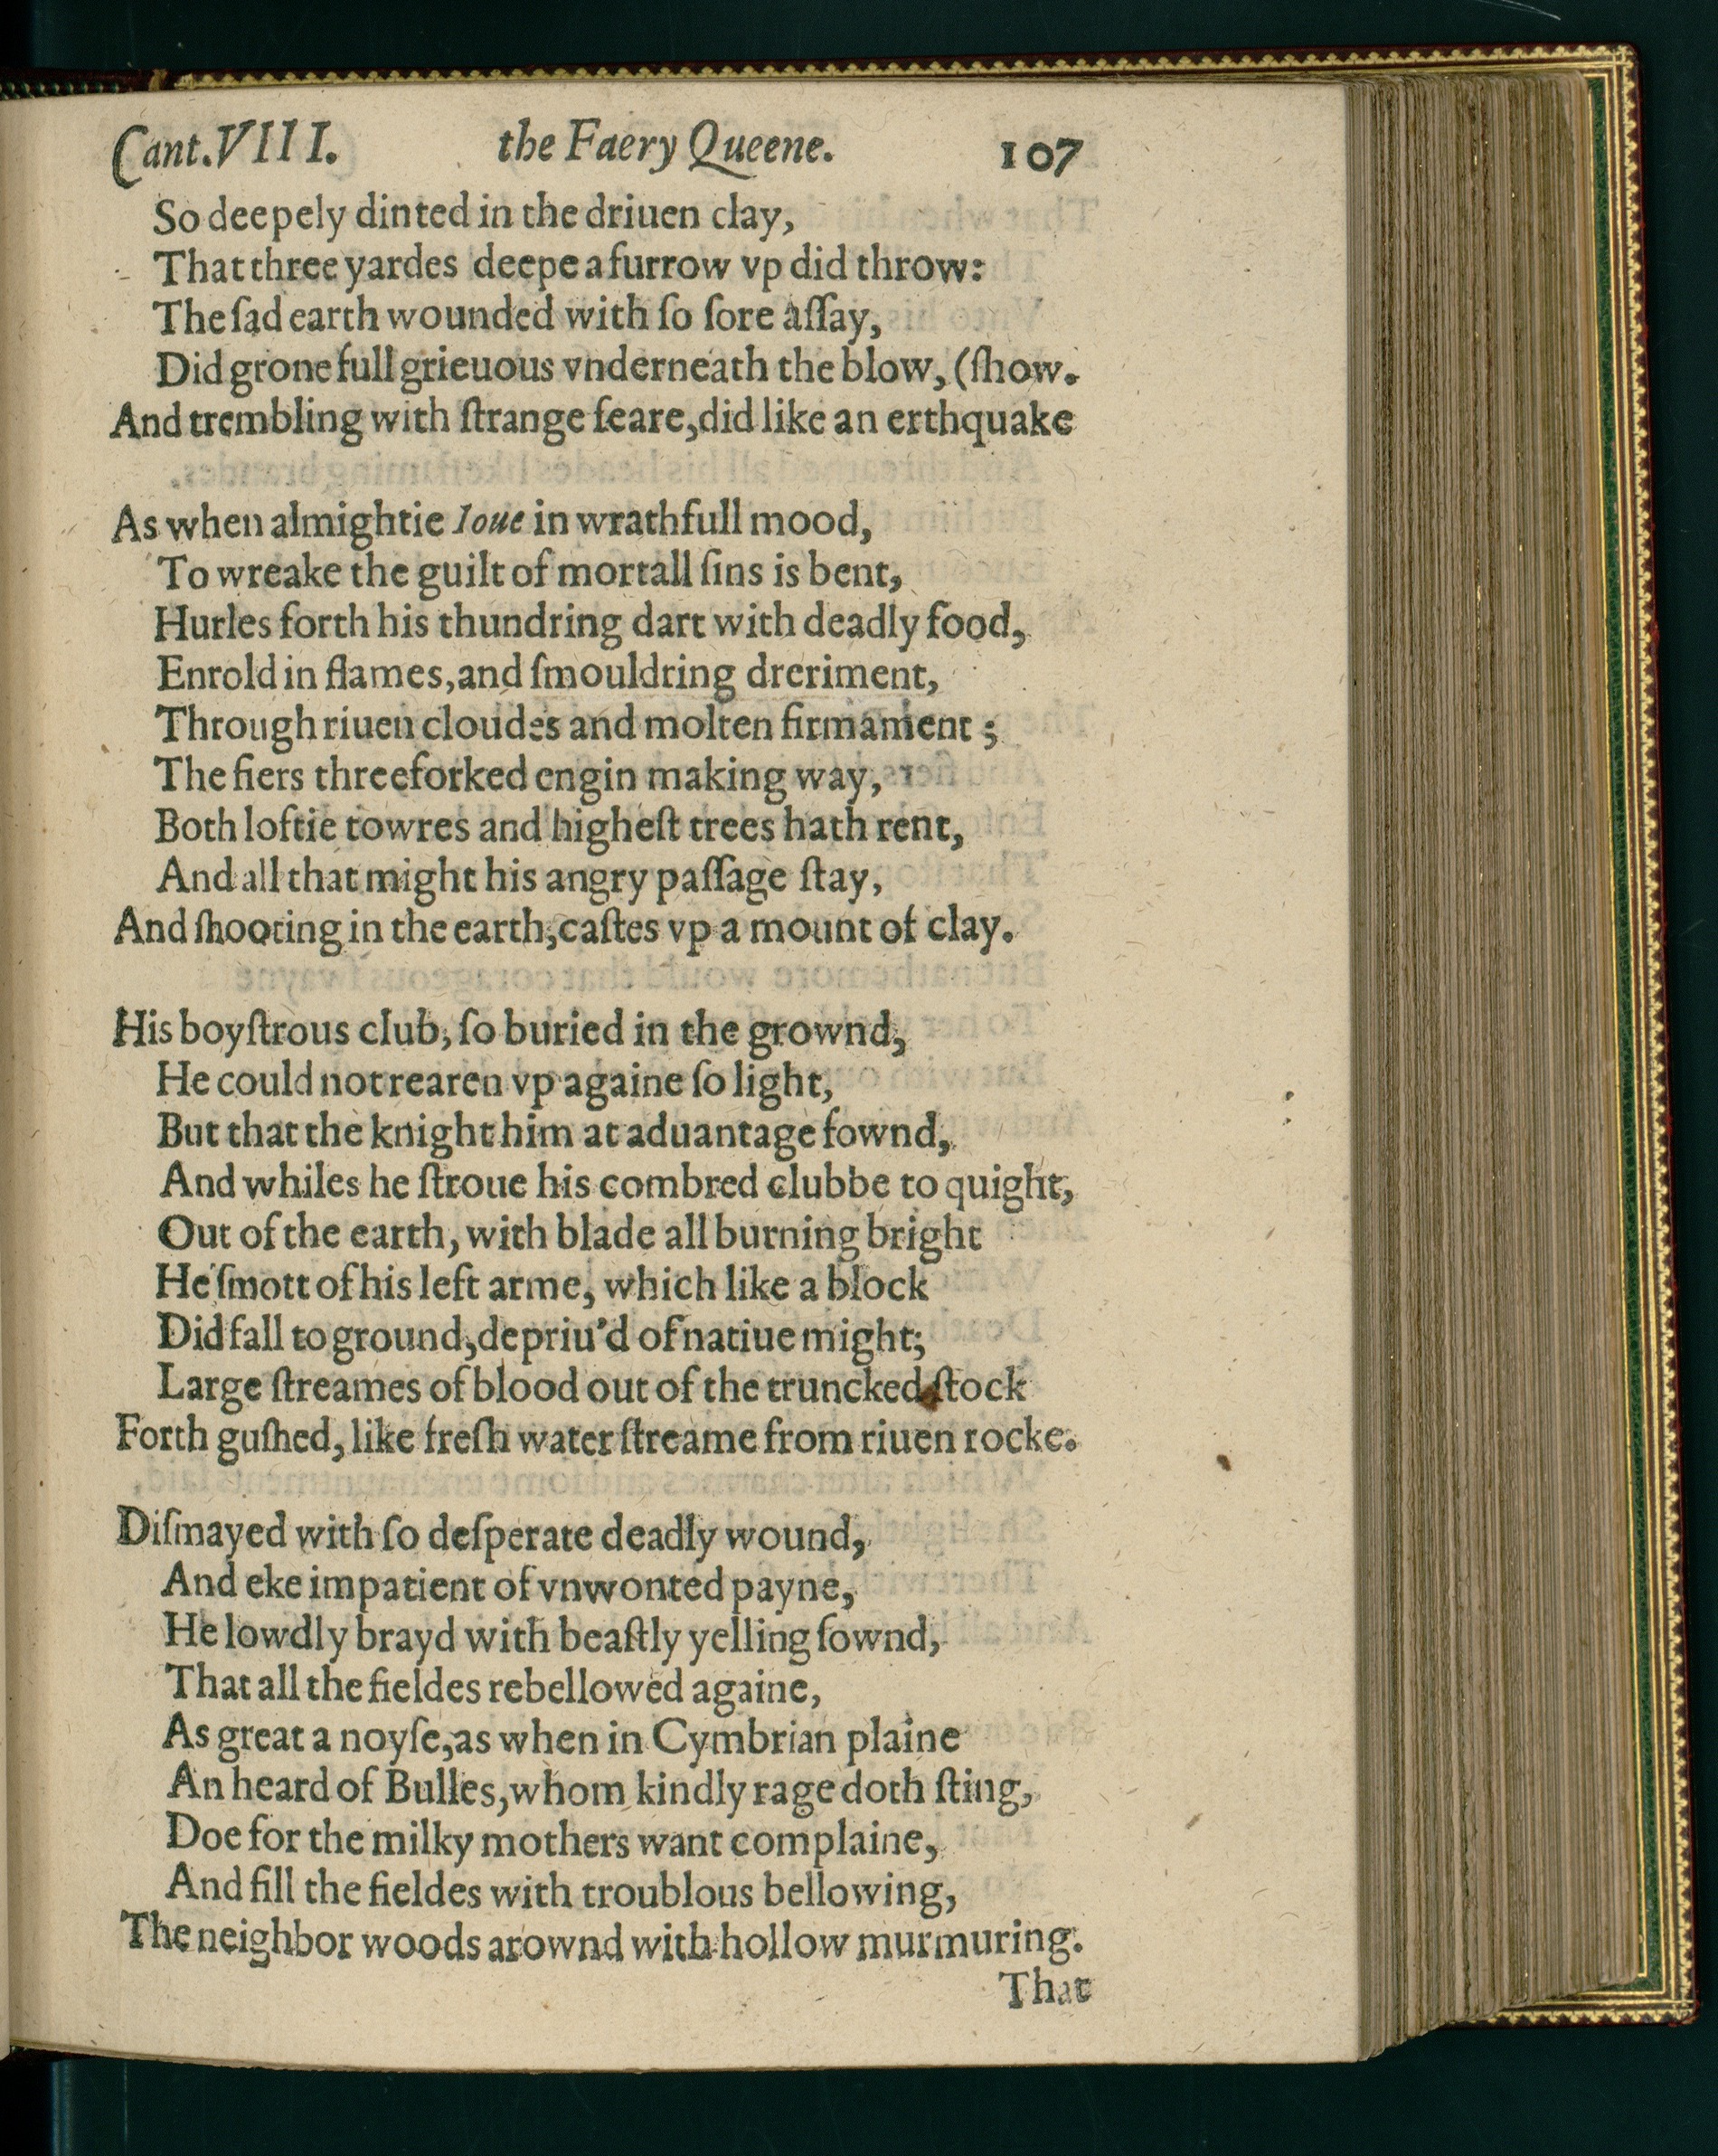 Cant. VIII. the Faery Queene. 107
So deepely dinted in the driuen clay,
That three yardes deepe a furrow vp did throw:
The ſad earth wounded with ſo ſore aſſay,
Did grone full grieuous vnderneath the blow, (ſhow.
And trembling with ſtrange feare, did like an erthquake
As when almightie Ioue in wrathfull mood,
To wreake the guilt of mortall ſins is bent,
Hurles forth his thundring dart with deadly food,
Enrold in flames, and ſmouldring dreriment,
Through riuen cloudes and molten firmament;
The fiers threeforked engin making way,
Both loftie towres and higheſt trees hath rent,
And all that might his angry paſſage ſtay,
And ſhooting in the earth, caſtes vp a mount of clay.
His boyſtrous club, ſo buried in the grownd,
He could not rearen vp againe ſo light,
But that the knight him at aduantage fownd,
And whiles he ſtroue his combred clubbe to quight,
Out of the earth, with blade all burning bright
He ſmott of his left arme, which like a block
Did fall to ground, depriu'd of natiue might;
Large ſtreames of blood out of the truncked ſtock
Forth guſhed, like freſh water ſtreame from riuen rocke.
Diſmayed with ſo deſperate deadly wound,
And eke impatient of vnwonted payne,
He lowdly brayd with beaſtly yelling ſownd,
That all the fieldes rebellowed againe,
As great a noyſe, as when in Cymbrian plaine
An heard of Bulles, whom kindly rage doth ſting,
Doe for the milky mothers want complaine,
And fill the fieldes with troublous bellowing,
The neighbor woods arownd with hollow murmuring.
That